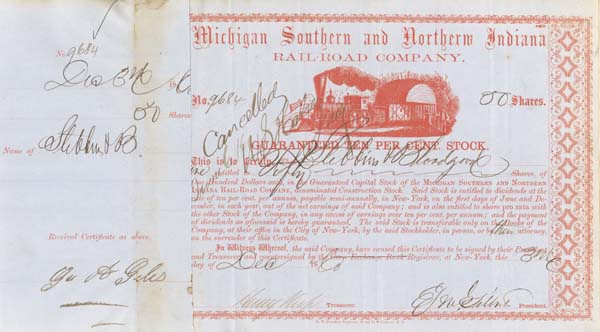 No. 9684
Dec
50
Shares
Name of
Stebbins & B.
Received Certificate as above,
Geo H Giles
Michigan Southern and Northern Indiana
RAIL-ROAD COMPANY.
No. 9684
50 Shares.
Cancelled
GUARANTEED TEN PER CENT. STOCK.
This is to Certify Stebbins & Bloodgood
entitled to Fifty Shares, of
One Hundred Dollars each, in the Guaranteed Capital Stock of the MICHIGAN SOUTHERN AND NORTHERN
INDIANA RAIL-ROAD COMPANY, denominated Construction Stock. Said Stock is entitled to Dividends at the
rate of ten per cent. per annum, payable semi-annually, in New-York, on the first days of June and De-
cember, in each year, out of the net earnings of said Company; and is also entitled to share pro rata with
the other Stock of the Company, in any excess of earnings over ten per cent. per annum; and the payment
of dividends as aforesaid is hereby guaranteed. The said Stock is transferable only on the books of the
Company, at their office in the City of New-York, by the said Stockholder, in person, or by attorney,
on the surrender of this Certificate.
In Witness Whereof, the said Company, have caused this Certificate to be signed by their President
and Treasurer and countersigned by the Registrar, at New-York, this
day of Dec
Treasurer.
President.